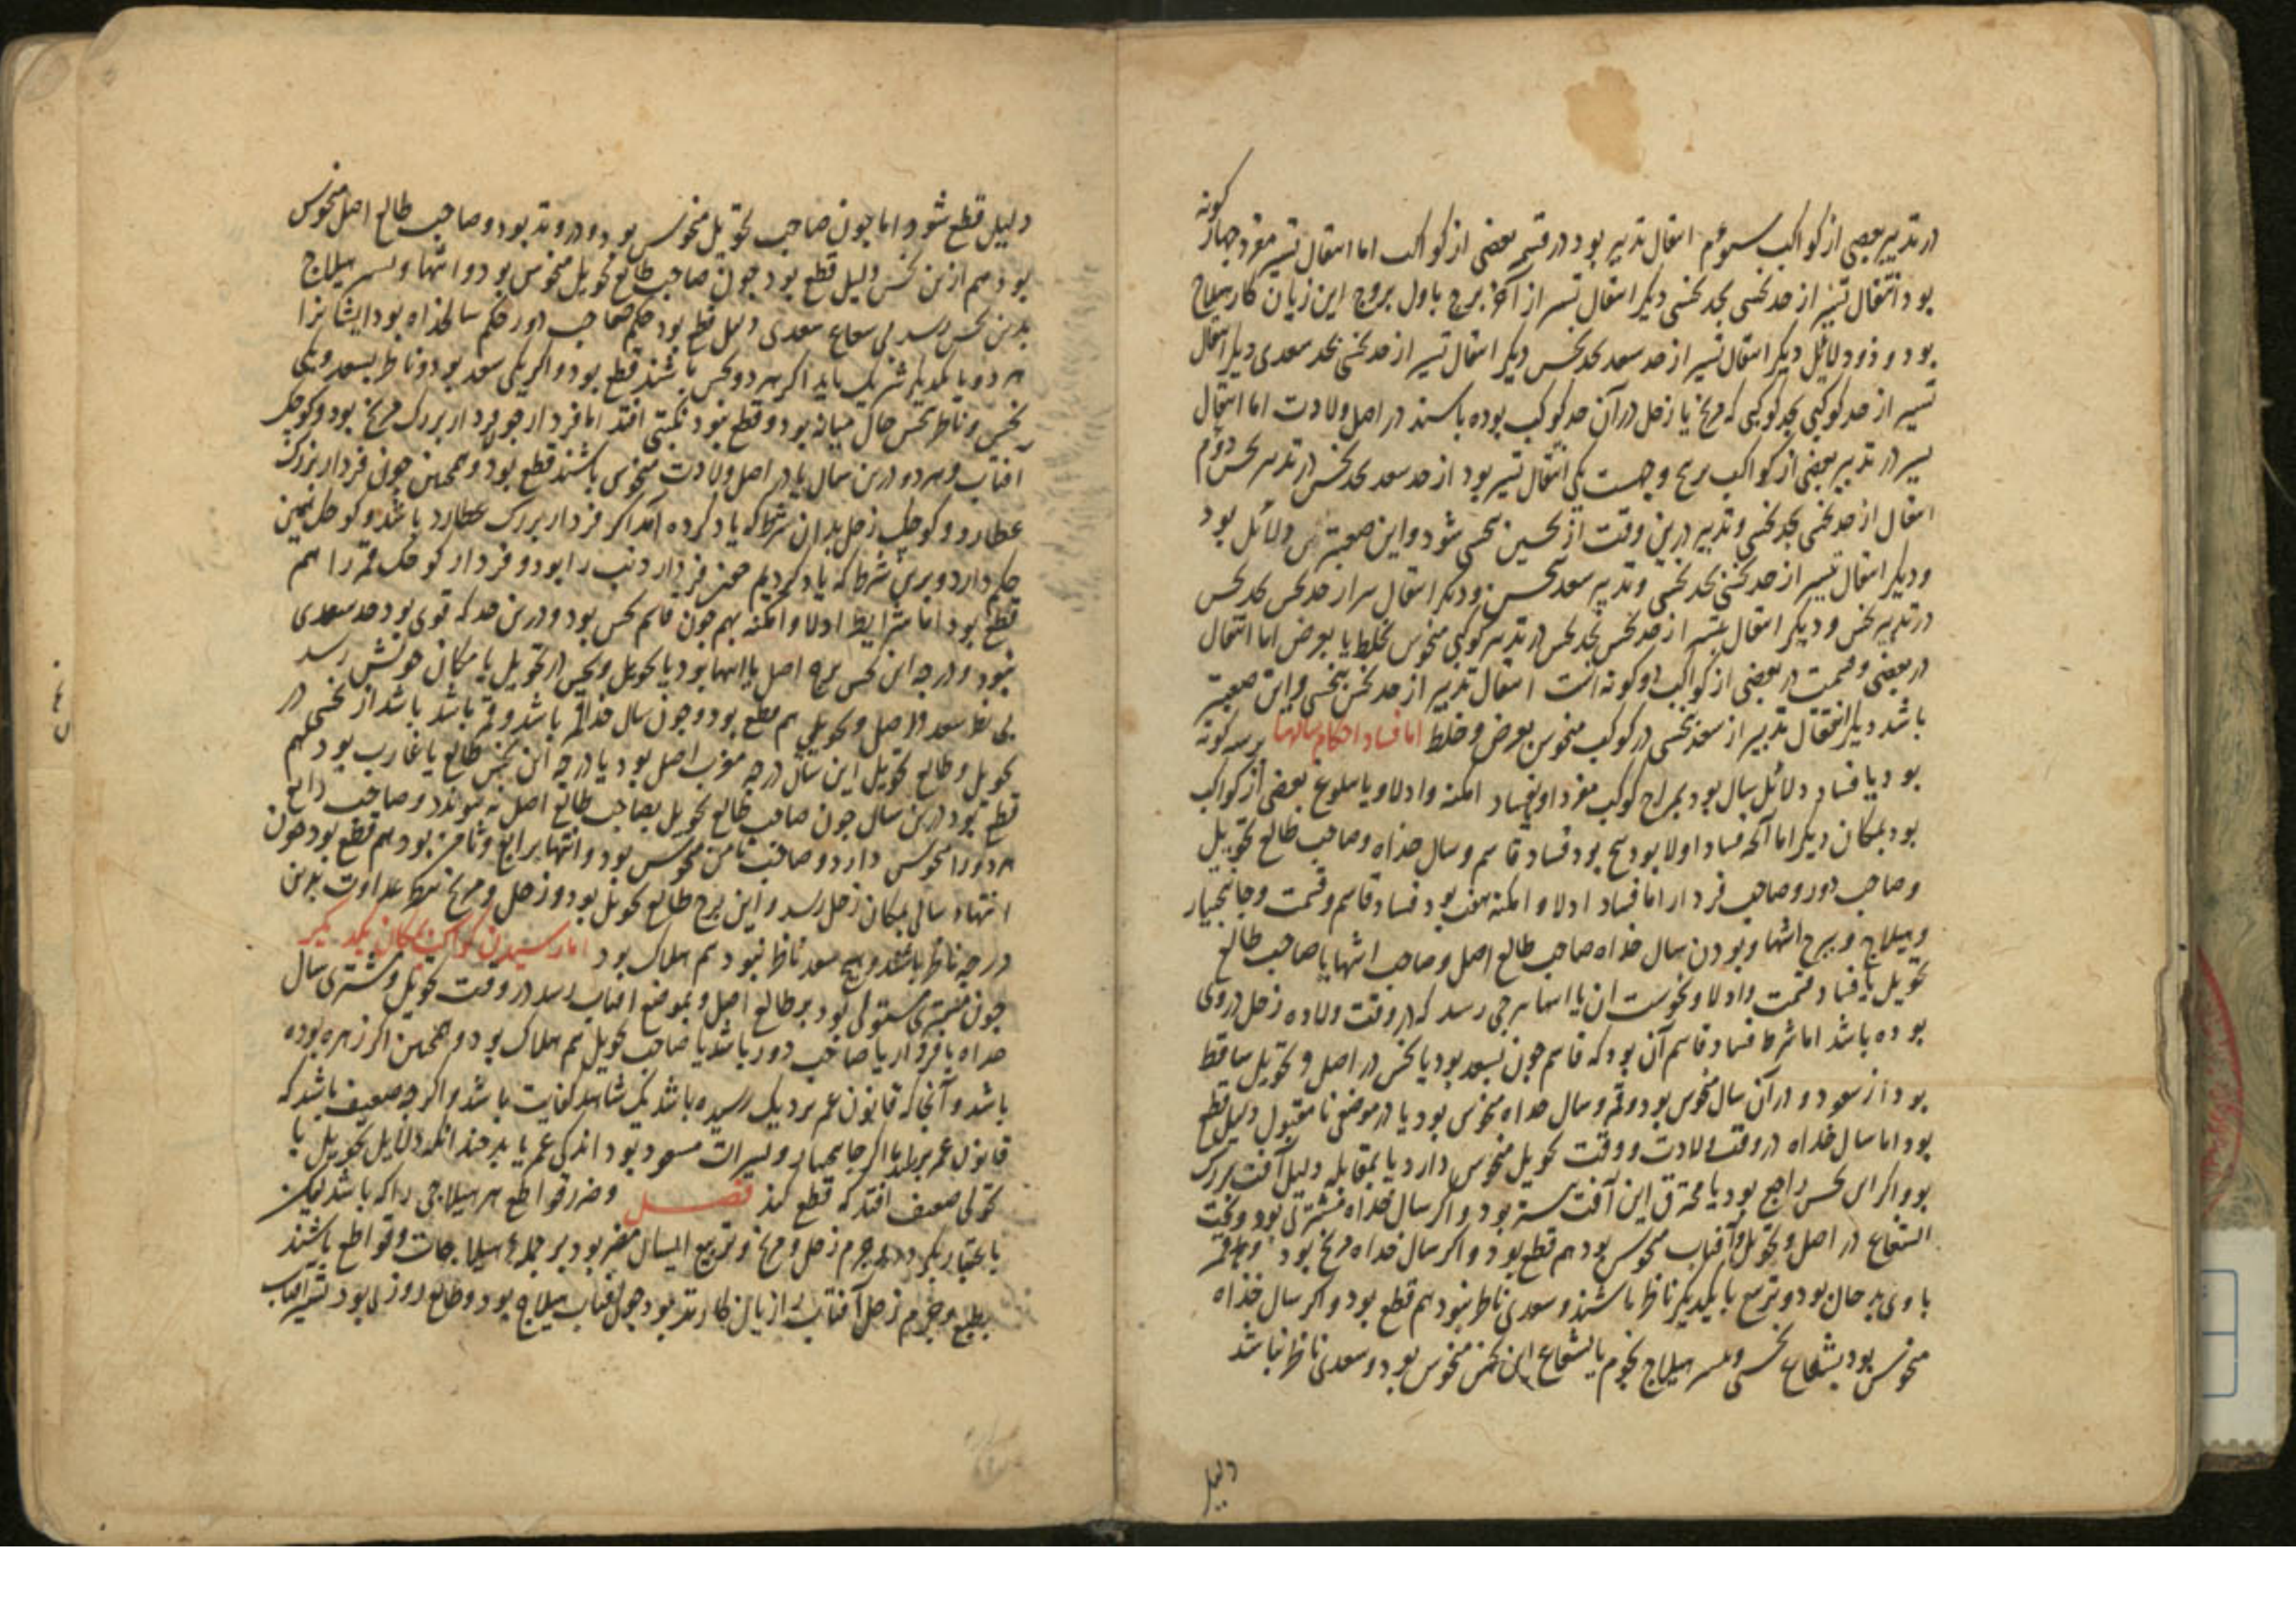 در تدبیر بعضی از کواکب سوم انتقال تدبیر بود در قسم بعضی از کواکب اما انتقال تسیر مفرد چهار کونه
بود انتقال تسیر از حد نحسی بحد نحسی دیکر انتقال تسیر از آخر برج باول برج این زیان کار هیلاج
بود و ذو دلائل دیکر انتقال تسیر از حد سعد بحد نحس دیکر انتقال تسیر از حد نحسی بحد سعدی دیکر انتقال
تسیر از حد کوکبی بحد کوکبی که مریخ یا زحل در آن حد کوکب بوده باشند در اصل ولادت اما انتقال
تسیر در تدبیر بعضی از کواکب پنج وجهست یکی انتقال تسیر بود از حد سعد بحد نحس در تدبیر نحس دوم
انتقال از حد نحسی بحد نحسی و تدبیر درین وقت از نحسین نحسی شود و این صعبترین دلائل بود
و دیکر انتقال تسیر از حد نحسی بحد نحسی و تدبیر سعد نحس و دیکر انتقال تسیر از حد نحس بحد نحس
در تدبیر نحس و دیکر انتقال تسیر از حد نحس بحد نحس در تدبیر کوکبی منحوس بخلط یا بعرض اما انتقال
در بعضی و قسمت در بعضی از کواکب دو کونه است انتقال تدبیر از حد نحس بنحسی و این صعبتر
باشد دیکر انتقال تدبیر از سعد نحسی در کوکب منحوس بعرض و خلط اما فساد احکام سالها بر سه کونه
بود یا فساد دلائل سال بود بمزاج کوکب مفرد او بفساد امکنه و ادلا و یا بلوغ بعضی از کواکب
بود بمکان دیکر اما آنکه فساد اولا بود پنج بود فساد قاسم و سال خداه و صاحب طالع تحویل
و صاحب دور و صاحب فردار اما فساد ادلا و امکنه هفت بود فساد قاسم و قسمت و جانبختار
و هیلاج و برج انتها و بودن سال خداه صاحب طالع اصل و صاحب انتها یا صاحب طالع
تحویل یا فساد قسمت و ادلا و نحوست ان یا انتها ببرجی رسد که در وقت ولاده زحل در وی
بوده باشد اما شرط فساد قاسم آن بود که قاسم چون بسعد بود یا نحس در اصل و تحویل ساقط
بود از سعود و در آن سال منحوس بود و قمر و سال خداه منحوس بود یا در موضعی نا مقبول دلیل قطع
بود اما سال خداه در وقت ولادت و وقت تحویل منحوس دارد یا بمقابله دلیل آفت بزرک
بود و اکر این نحس راجع بود یا محترق این آفت بود و اکر سال خداه مشتری بود و تحت
الشعاع در اصل و تحویل و آفتاب منحوس بود هم قطع بود و اکر سال خداه مریخ بود و قمر
با وی بد حال بود و تربیع با یکدیکر ناظر باشند و سعدی ناظر نبود هم قطع بود و اکر سال خداه
منحوس بود بشعاع نحسی و تسیر هیلاج بجرم یا بشعاع این نحس منحوس بود و سعدی ناظر نباشد
دلیل
دلیل قطع شود اما چون صاحب تحویل منحوس بود و در وتد بود و صاحب طالع اصل منحوس
بود هم ازین نحس دلیل قطع بود چون صاحب طالع تحویل منحوس بود و انتها و تسیر هیلاج
بدین نحس رسد بی شعاع سعدی دلیل قطع بود حکم صاحب دور حکم سالخداه بود ایشانرا
هر دو با یکدیکر شریک باید اکر هر دو نحس باشند قطع بود و اکر یکی سعد بود و ناظر بسعد و یکی
نحس و ناظر بنحس حال میانه بود و قطع نبود نکبتی افتد اما فردار چون فردار بزرک مریخ بود و کوچک
افتاب و هر دو درین سال یا در اصل ولادت منحوس باشند قطع بود و همچنین چون فردار بزرک
عطارد و کوچک زحل بدان شرط که یاد کرده آمد اکر فردار بزرک عطارد باشد و کوچک همین
حکم دارد و برین شرط که یاد کردیم فردار ذنب را بود و فردار کوچک قمر را هم
قطع بود اما شرایط ادلا و امکنه بهم چون قاسم نحس بود و درین حد که قوی بود حد سعدی
نبود و درجه این نحس برج اصل یا انتها بود یا تحویل و نحس در تحویل یا مکان خویش رسد
بی نظر سعد در اصل و تحویل هم قطع بود و چون سال خداه قمر باشد و قمر باشد از نحسی در
تحویل و طالع تحویل این سال درجه مغرب اصل بود یا درجه این نحس طالع یا غارب بود هم
قطع بود درین سال چون صاحب طالع تحویل بصاحب طالع اصل نه پیوندد و صاحب رابع
هر دو را منحوس دارد و صاحب ثامن منحوس بود و انتها برابع و ثامن بود هم قطع بود چون
انتهاء سالی بمکان زحل رسد و این برج طالع تحویل بود و زحل و مریخ بنظر عداوت بدین
درجه ناظر باشند و هیچ سعد ناظر نبود هم هلاک بود اما رسیدن کواکب بمکان یکدیکر
چون مشتری مستولی بود بر طالع اصل و بموضع افتاب رسد در وقت تحویل و مشتری سال
خداه یا فردار یا صاحب دور باشد یا صاحب تحویل هم هلاک بود و همچنین اکر زهره بوده
باشد و آنجا که قانون عمر نزدیک رسیده باشد یک شاهد کفایت باشد و اکرچه ضعیف باشد که
قانون عمر اکر جانبختار و تسیرات مسعود بود اندکی عمر یابد چند انکه دلایل تحویل با
تحولی ضعیف افتد که قطع کند فصل و ضرر قواطع هر هیلاجی را که باشد نیک
باعتبار بکیرد و جرم زحل و مریخ و تربیع ایشان مضر بود بر جمله هیلاجات و قواطع باشند
بطبع و جرم زحل آفتاب را زیان کارتر بود چون آفتاب هیلاج بود و طالع روزی بود تسیر افتاب